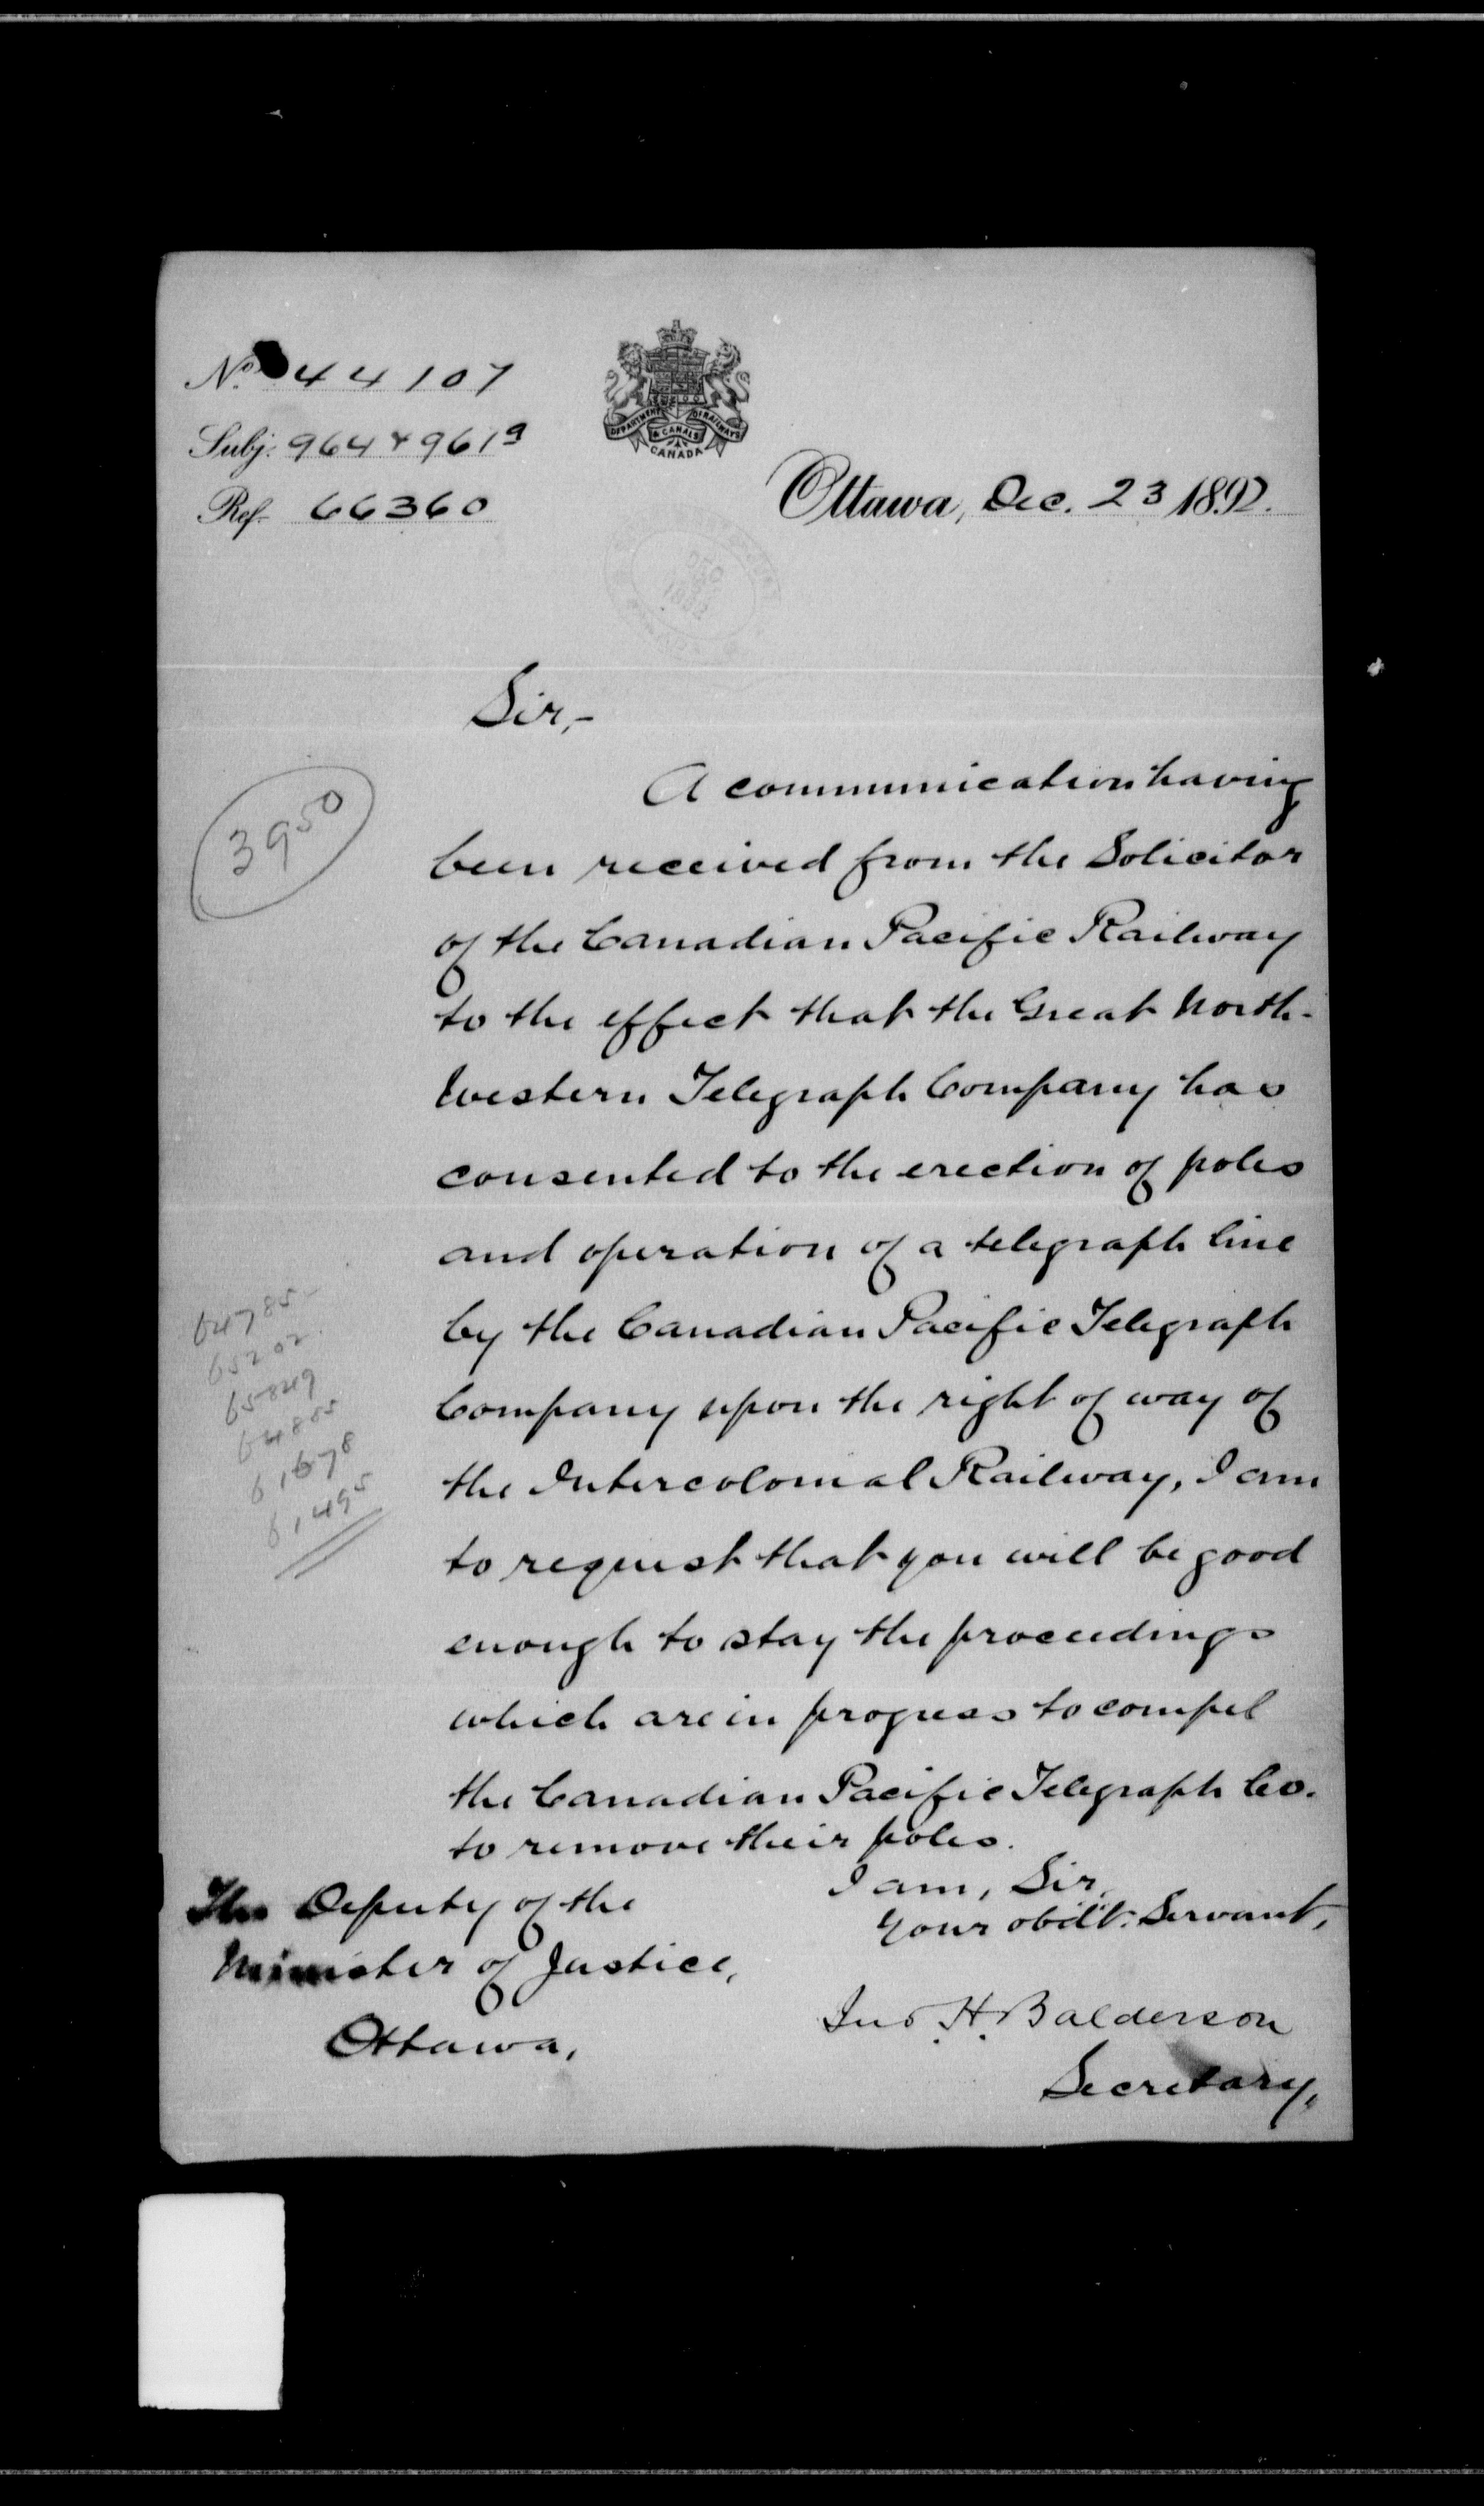 No. 44107
Subj: 964 & 9619
Ref. 66360
DEPARTMENT OF RAILWAYS
& CANALS
CANADA
Ottawa, Dec. 23 1892.
Sir,-
3950
A communication having
been received from the Solicitor
of the Canadian Pacific Railway
to the effect that the Great North-
Western Telegraph Company has
consented to the erection of poles
and operation of a telegraph line
by the Canadian Pacific Telegraph
Company upon the right of way of
the Intercolonial Railway, I am
to request that you will be good
enough to stay the proceedings
which are in progress to compel
the Canadian Pacific Telegraph Co.
to remove their poles.
64785
65202
65849
64855
61678
61495
I am, Sir,
Your obdt. Servant,
Jno. H. Balderson
Secretary,
The Deputy of the
Minister of Justice,
Ottawa,